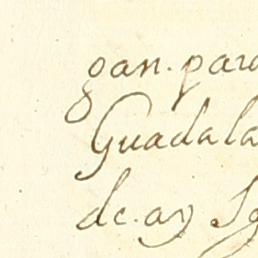 gan. para
Guadala
de. ay